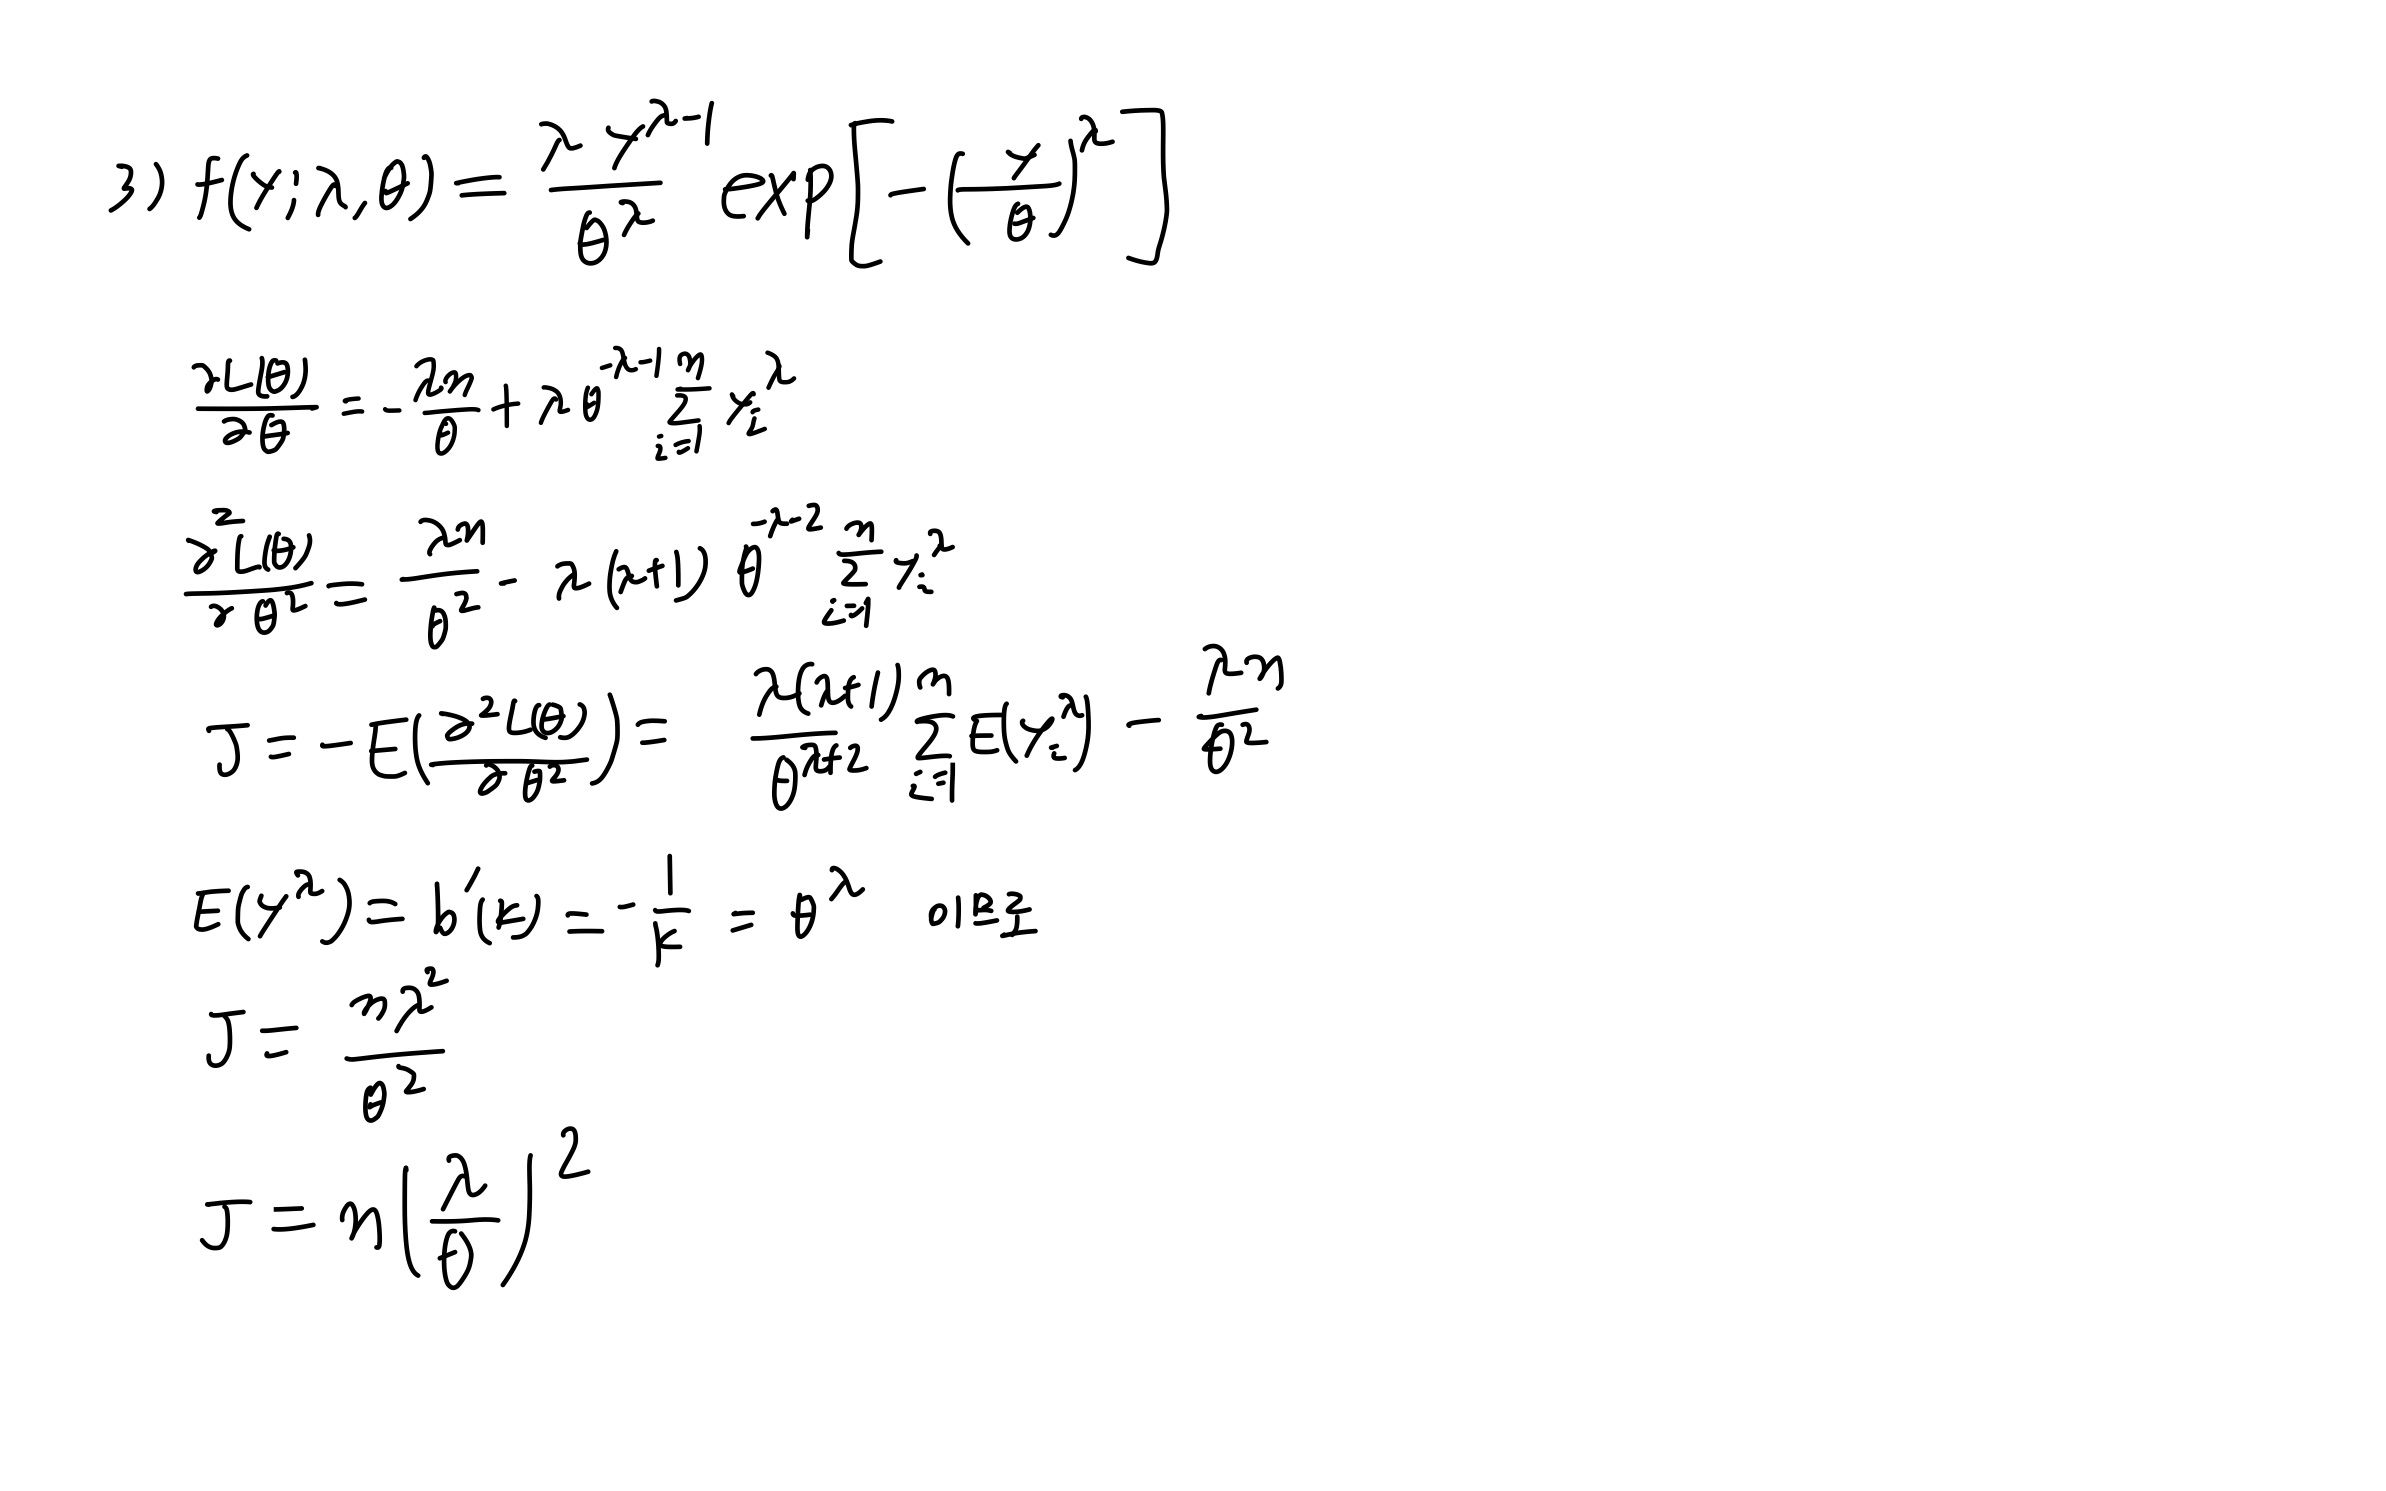 3) f(y; λ, θ) = λ y^{λ-1} / θ^λ exp[ - (y/θ)^λ ]
∂L(θ)/∂θ = - λn/θ + λ θ^{-λ-1} Σ_{i=1}^{n} y_i^λ
∂²L(θ)/∂θ² = λn/θ² - λ(λ+1) θ^{-λ-2} Σ_{i=1}^{n} y_i^λ
J = - E( ∂²L(θ)/∂θ² ) = λ(λ+1)/θ^{λ+2} Σ_{i=1}^{n} E(y_i^λ) - λn/θ²
E(y^λ) = b'(k) = - 1/k = θ^λ 이므로
J = nλ²/θ²
J = n(λ/θ)²